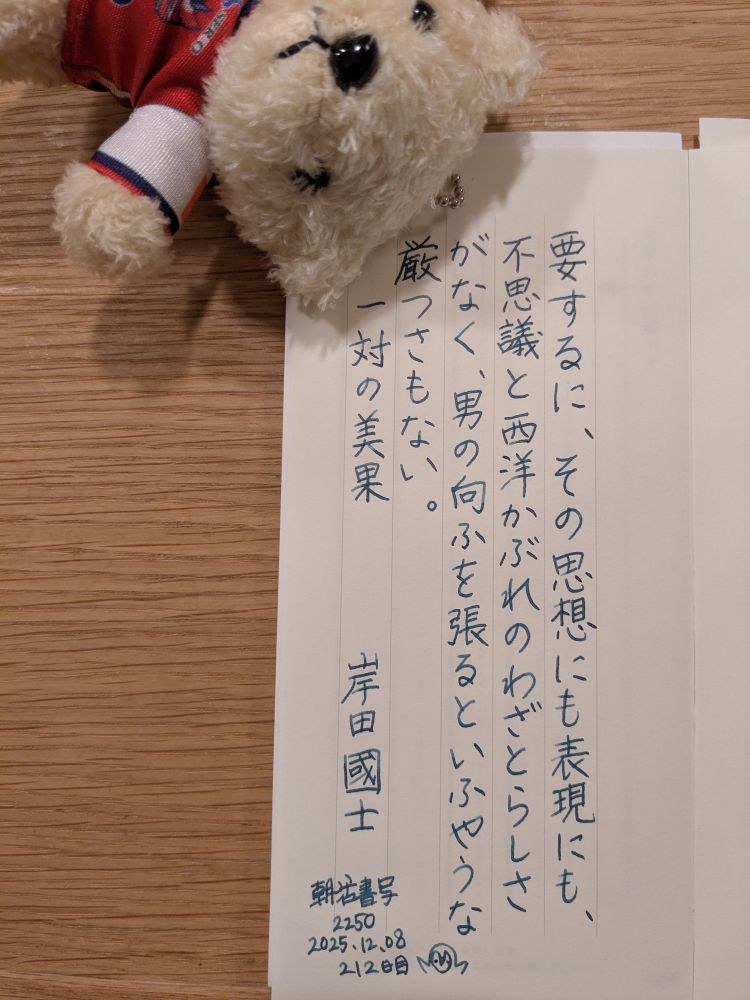 要するに、その思想にも表現にも、
不思議と西洋かぶれのわざとらしさ
がなく、男の向ふを張るといふやうな
厳つさもない。
一対の美果 岸田國士
朝活書写
2250
2025.12.08
212日目